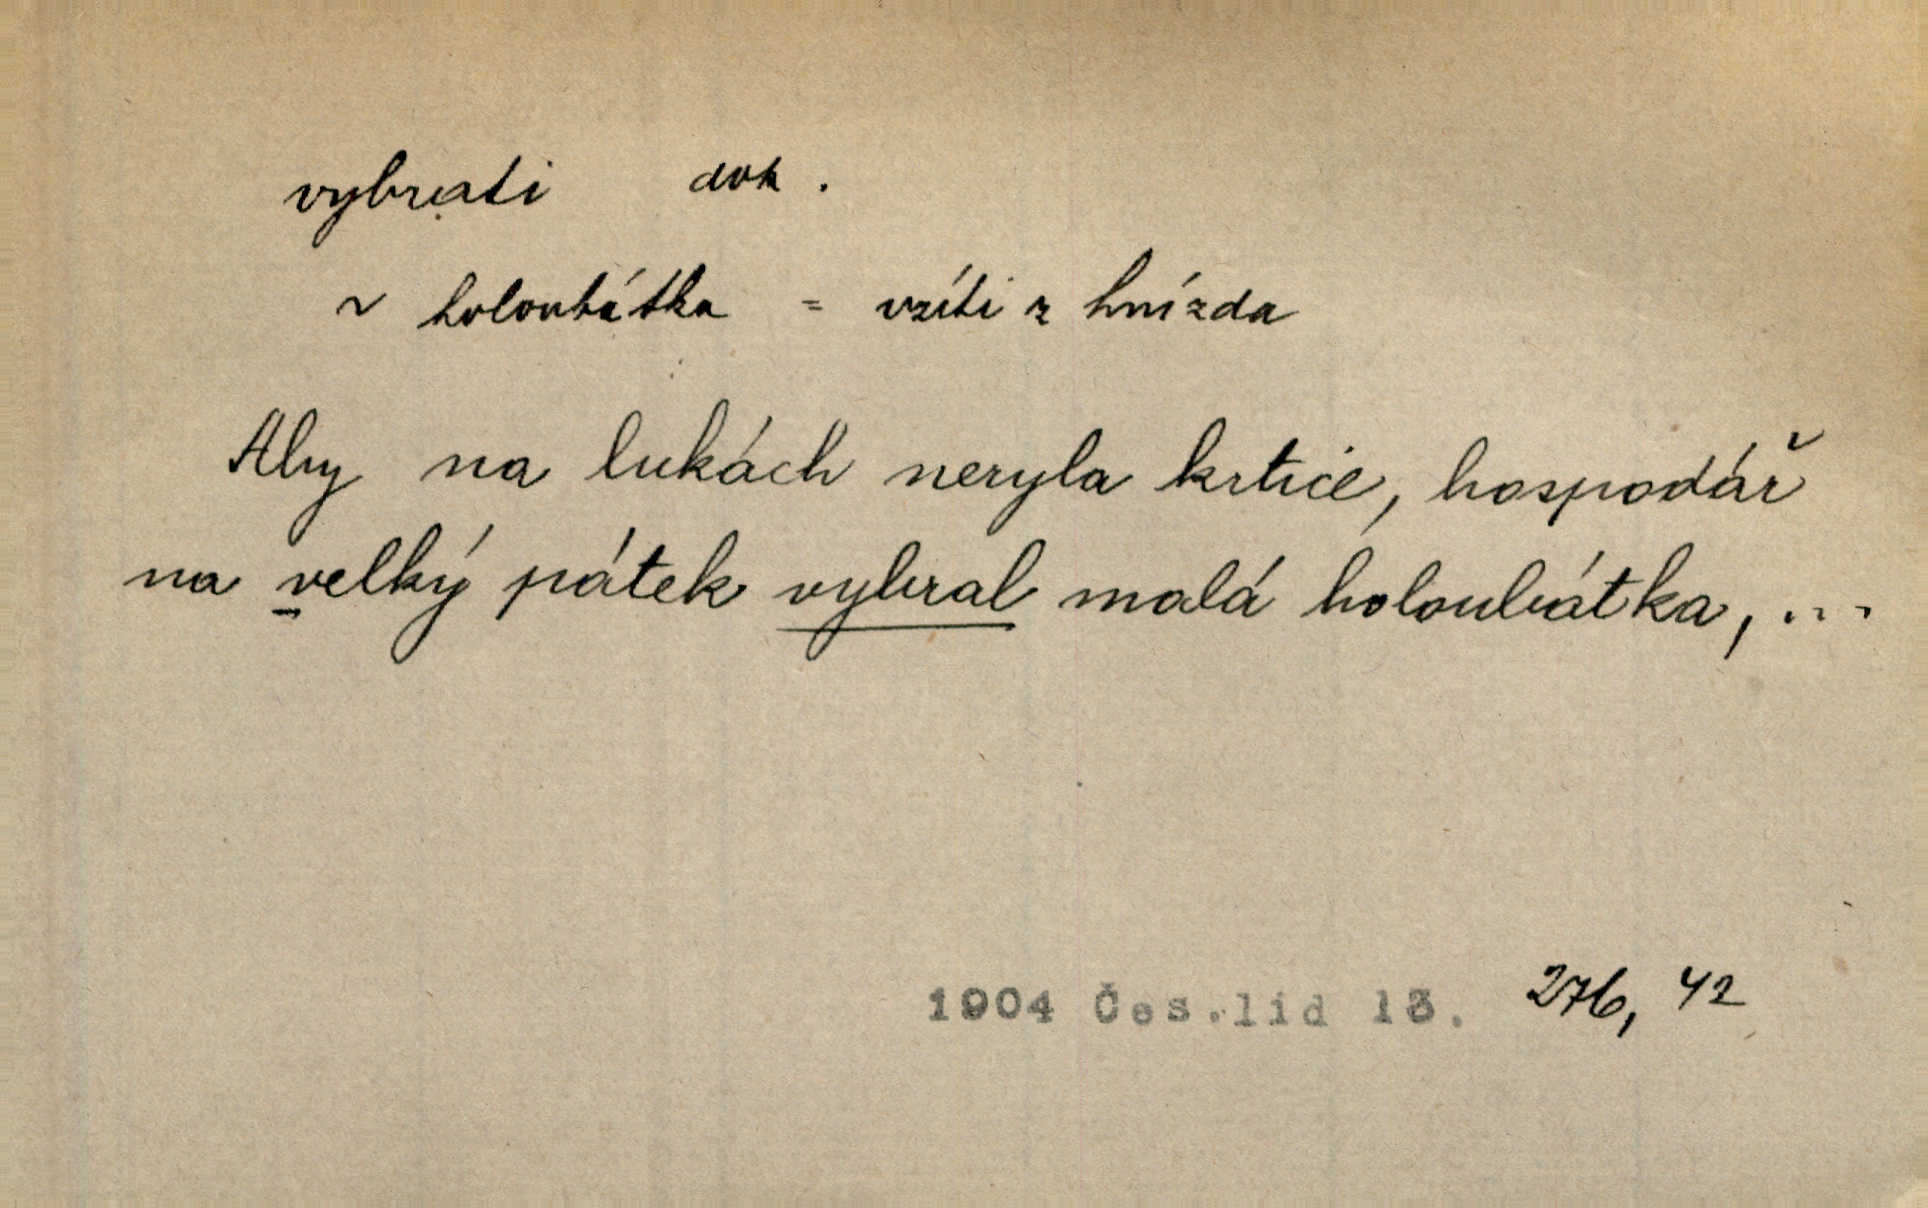 vybrati dok.
~ holoubátka = vzíti z hnízda
Aby na lukách neryla krtice, hospodář
na velký pátek vybral malá holoubátka, ...
1904 Čes.lid 13. 276, 42